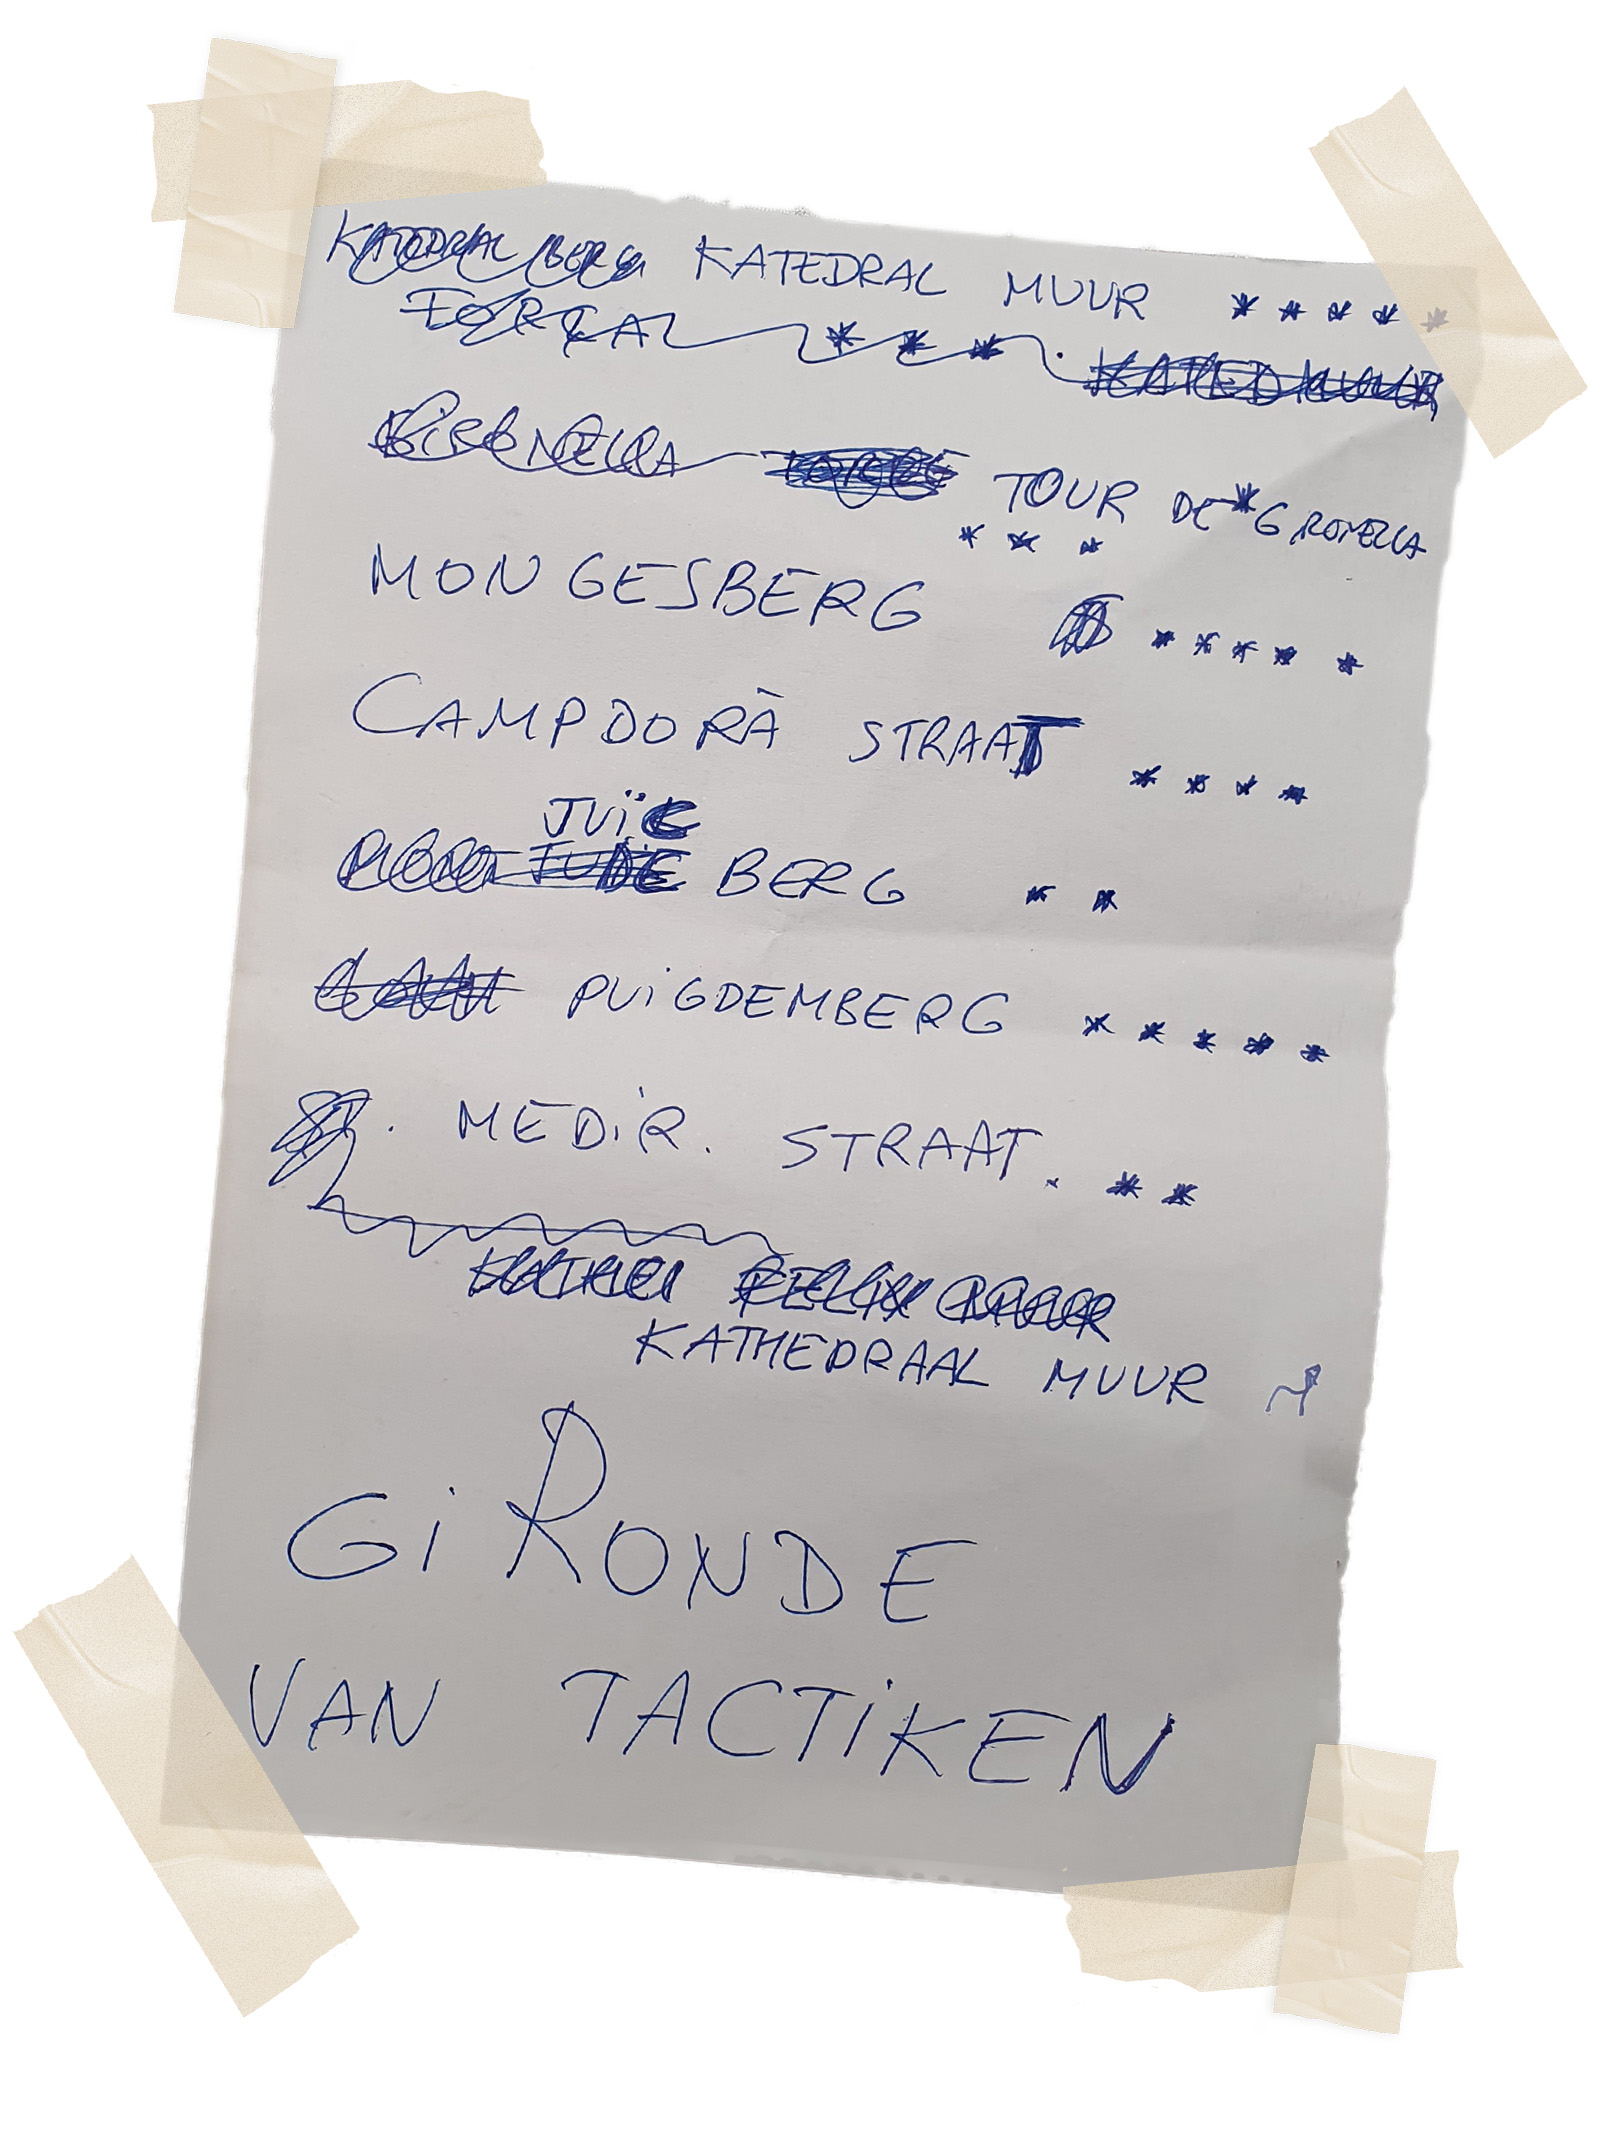 KATEDRAL BERG KATEDRAL MUUR * * * * *
FORÇA * * *
GIRONELLA TOUR DE * GIRONELLA
* * *
MONGESBERG * * * * *
CAMPDORÀ STRAAT * * * *
JUÏC
BERG * *
PUIGDEMBERG * * * * *
. MEDIR. STRAAT. * *
KATHEDRAAL MUUR
GIRONDE
VAN TACTIKEN